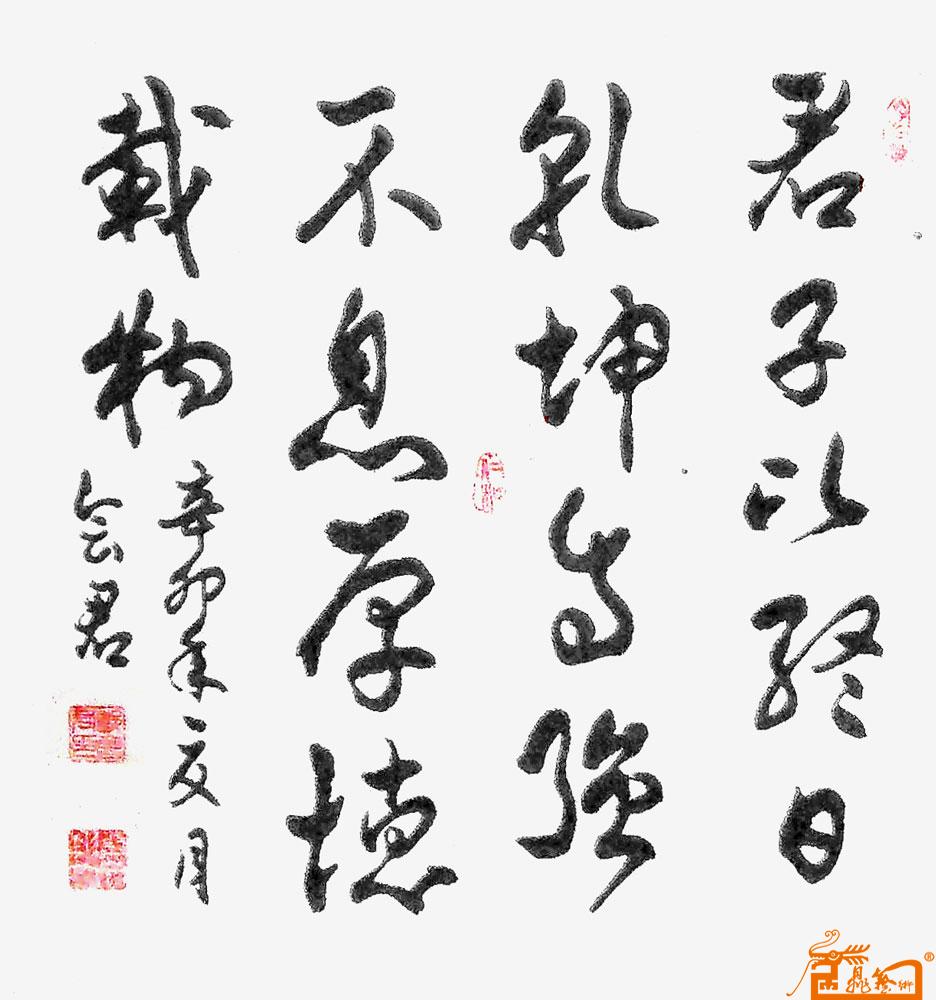 君子以终日
乾坤自强
不息厚德
載物
辛卯年夏月
会君